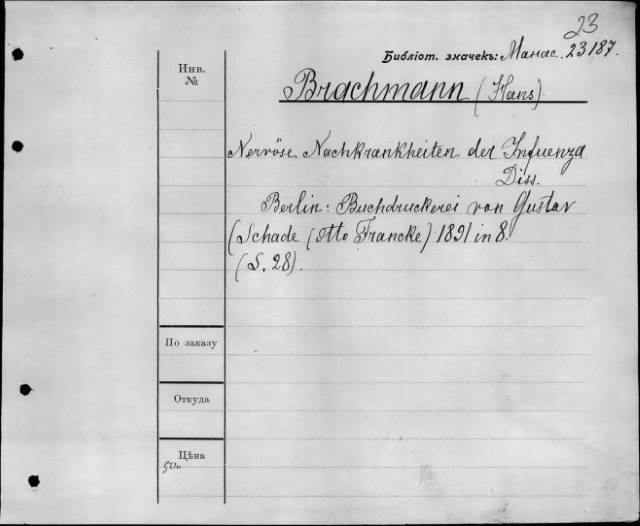 23
Библіот. значекъ: Манас. 23187.
Инв.
№
Brachmann (Hans).
Nervöse Nachkrankheiten der Infuenza
Diss.
Berlin: Buchdruckerei von Gustav
(Schade (Otto Francke) 1891 in 8.
(S. 28).
По заказу
Откуда
Цѣна